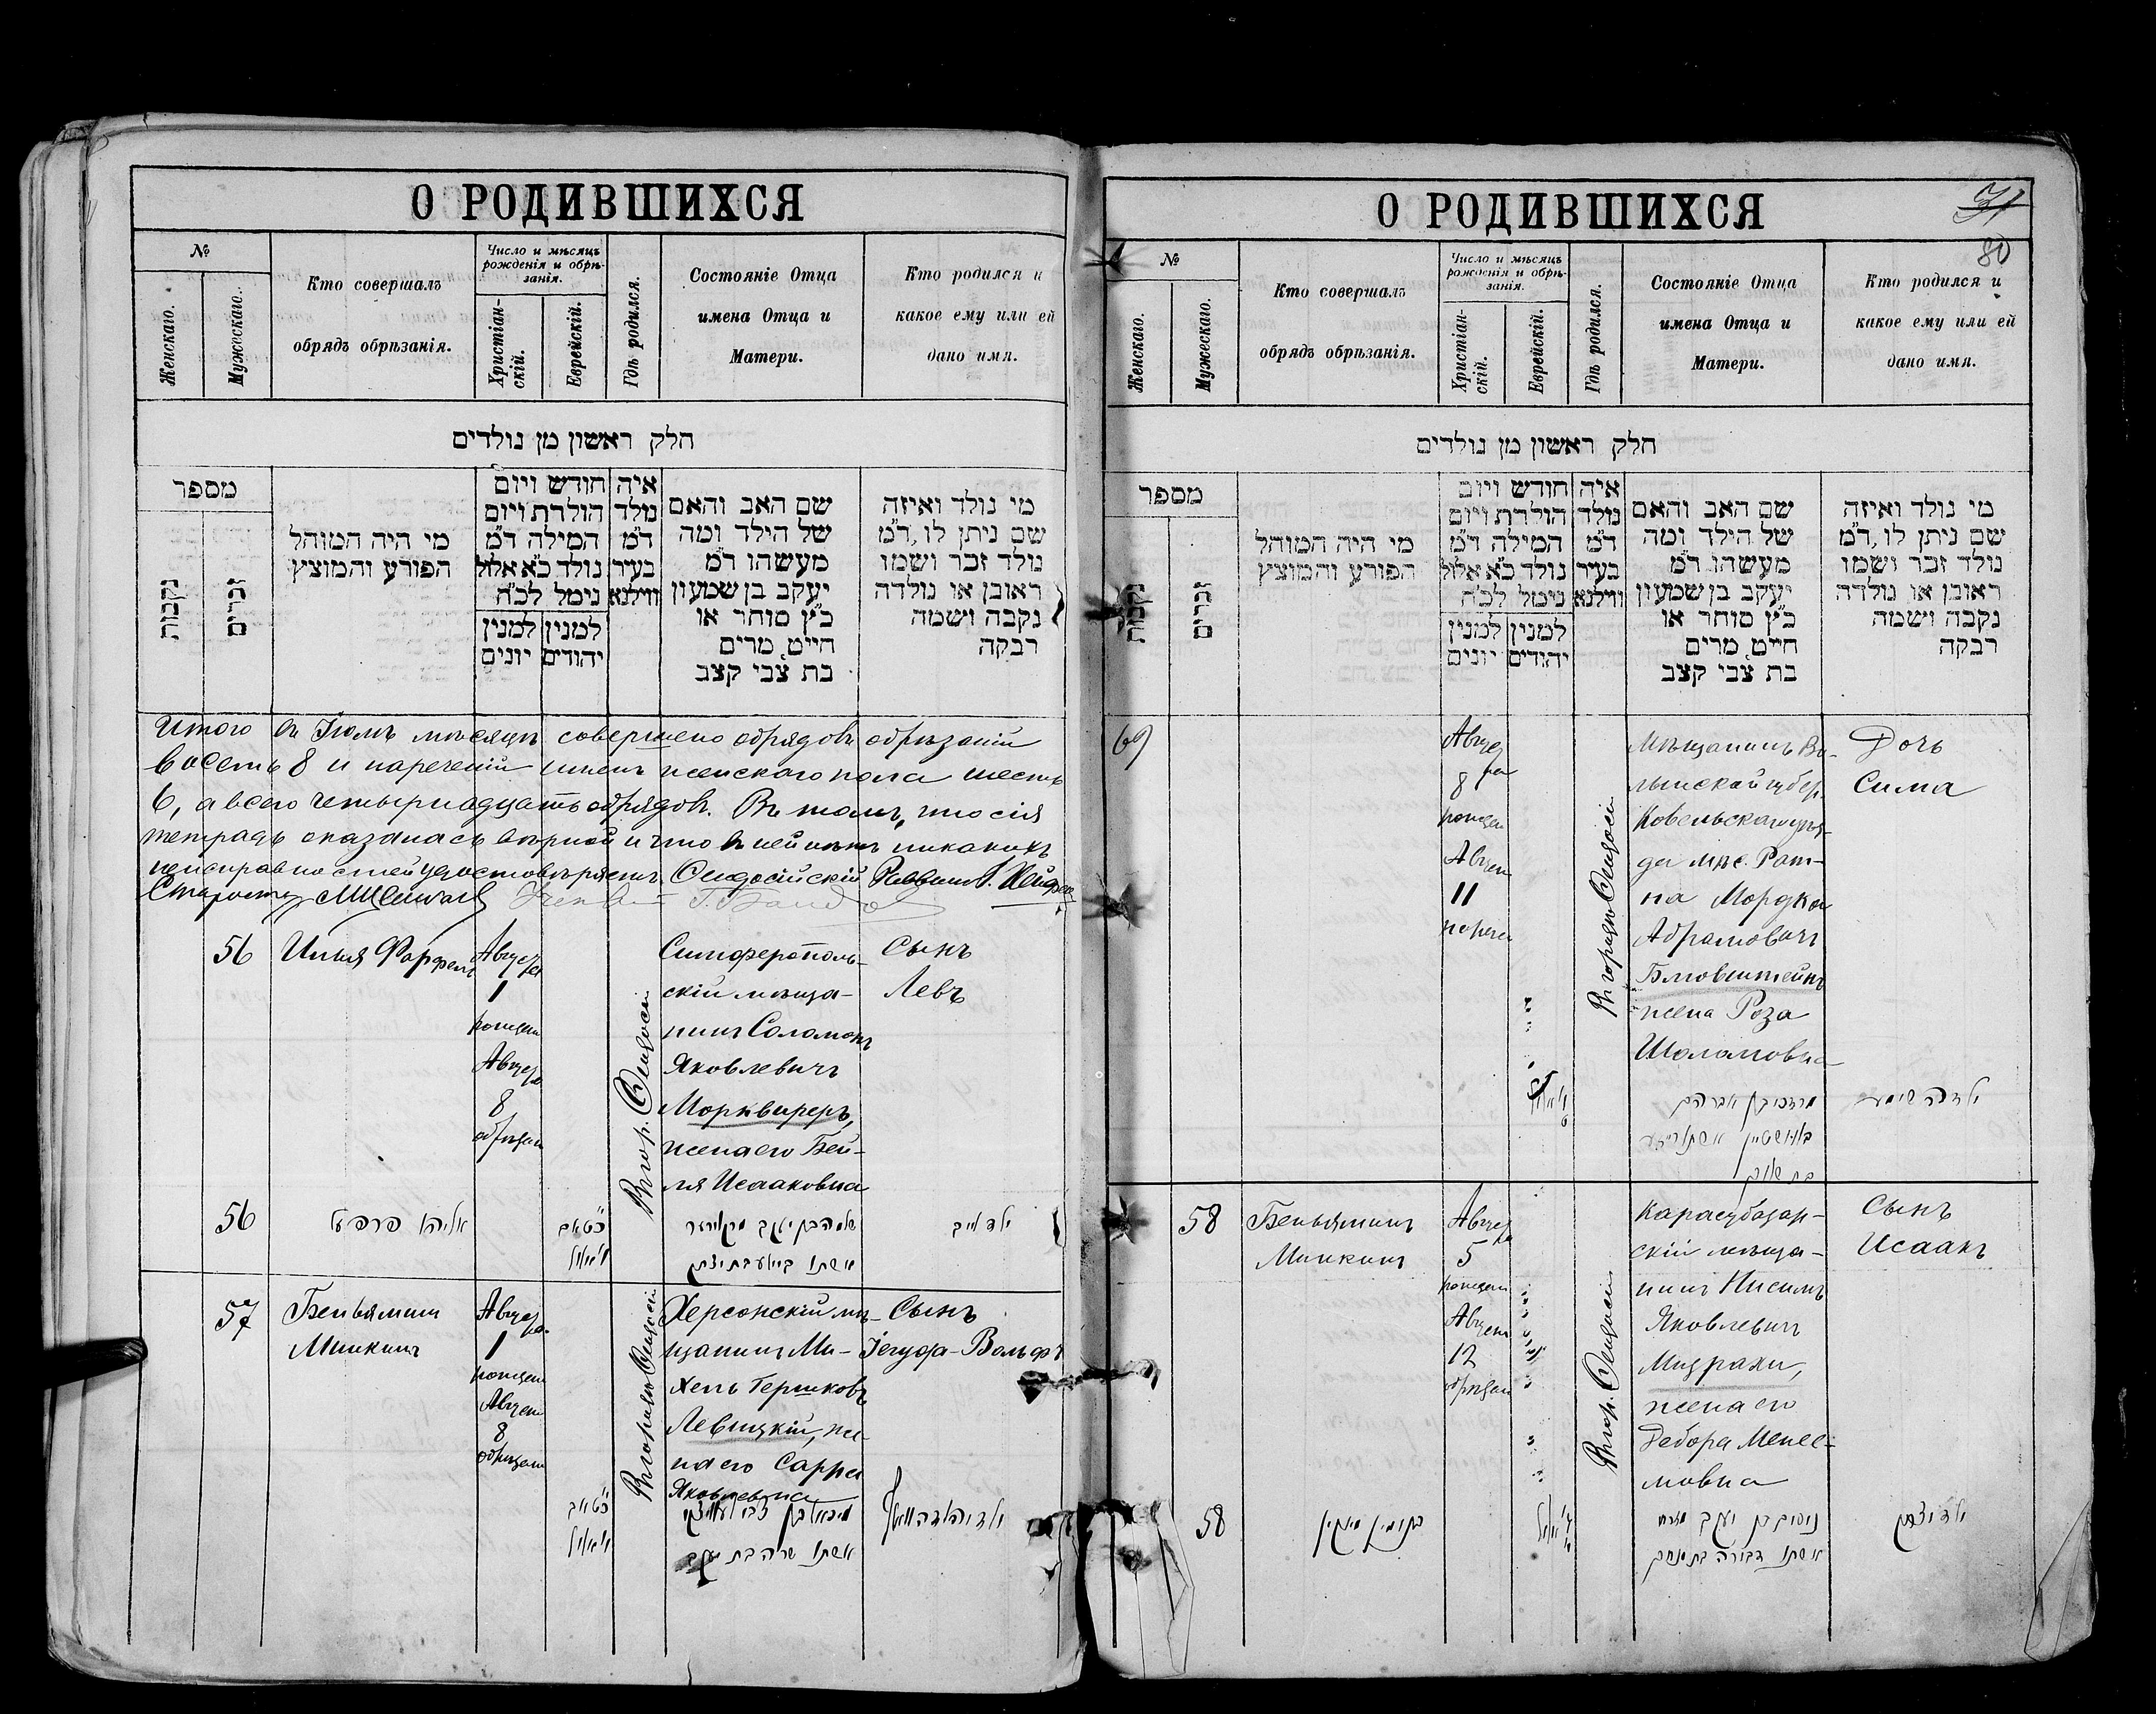 О РОДИВШИХСЯ
№
Женскаго.
Мужескаго.
Кто совершалъ
обрядъ обрѣзанія.
Число и мѣсяцъ
рожденія и обрѣ-
занія.
Христіан-
скій.
Еврейскій.
Гдѣ родился.
Состояніе Отца
имена Отца и
Матери.
Кто родился и
какое ему или ей
дано имя.
חלק ראשון מן נולדים
מספר
נקבות
זכרים
מי היה המוהל
הפורע והמוצץ
חודש ויום
הולדת ויום
המילה ד"מ
נולד כ"א אלול
נימל לכ"ח
למנין יהודים
למנין יונים
איה
נולד
ד"מ
בעיר
ווילנא
שם האב והאם
של הילד ומה
מעשהו ד"מ
יעקב בן שמעון
כ"ץ סוחר או
חייט, מרים
בת צבי קצב
מי נולד ואיזה
שם ניתן לו, ד"מ
נולד זכר ושמו
ראובן או נולדה
נקבה ושמה
רבקה
Итого въ Іюлѣ мѣсяцѣ совершено обрядовъ обрѣзаній
восемь 8 и нареченій именъ женскаго пола шесть
6, а всего четырнадцать обрядовъ. Въ томъ, что сія
тетрадь оказалась вѣрной и что въ ней нѣтъ никакихъ
неисправностей удостовѣряемъ. Ѳеодосійскій Раввинъ
Староста
56
Илья Фарфель
Августа
1
рожденъ
Августа
8
обрѣзанъ
Въ гор. Ѳеодосіи
Симферополь-
скій мѣща-
нинъ Соломонъ
Яковлевичъ
Морквиреръ,
жена его Бей-
ля Исааковна
Сынъ
Левъ
56
57
Беньяминъ
Минкинъ
Августа
1
рожденъ
Августа
8
обрѣзанъ
Въ городѣ Ѳеодосіи
Херсонскій мѣ-
щанинъ Ми-
хель Гершковъ
Левицкій, же-
на его Сарра
Яковлевна
Сынъ
Іегуда-Вольфъ
אשתו שרה בת יעקב
О РОДИВШИХСЯ
80
№
Женскаго.
Мужескаго.
Кто совершалъ
обрядъ обрѣзанія.
Число и мѣсяцъ
рожденія и обрѣ-
занія.
Христіан-
скій.
Еврейскій.
Гдѣ родился.
Состояніе Отца
имена Отца и
Матери.
Кто родился и
какое ему или ей
дано имя.
חלק ראשון מן נולדים
מספר
נקבות
זכרים
מי היה המוהל
הפורע והמוצץ
חודש ויום
הולדת ויום
המילה ד"מ
נולד כ"א אלול
נימל לכ"ח
למנין יהודים
למנין יונים
איה
נולד
ד"מ
בעיר
ווילנא
שם האב והאם
של הילד ומה
מעשהו ד"מ
יעקב בן שמעון
כ"ץ סוחר או
חייט, מרים
בת צבי קצב
מי נולד ואיזה
שם ניתן לו, ד"מ
נולד זכר ושמו
ראובן או נולדה
נקבה ושמה
רבקה
Августа
8
рожден
Августа
11
нарече
Въ городѣ Ѳеодосіи
Мѣщанинъ Во-
лынской губер.
Ковельскаго уѣз-
да мѣс. Рат-
на Мордко
Абрамовичъ
жена Роза
Шоломовна
Дочь
Сима
58
Беньяминъ
Минкинъ
Августа
5
рожденъ
Августа
12
обрѣзанъ
Въ гор. Ѳеодосіи
Карасубазар-
скій мѣща-
нинъ Нисимъ
Яковлевичъ
Мизрахи,
жена его
Дебора Менее-
мовна
Сынъ
Исаакъ
58
בנימין מינקין
נסים בן יעקב מזרחי
אשתו דבורה בת מנחם
ילד יצחק